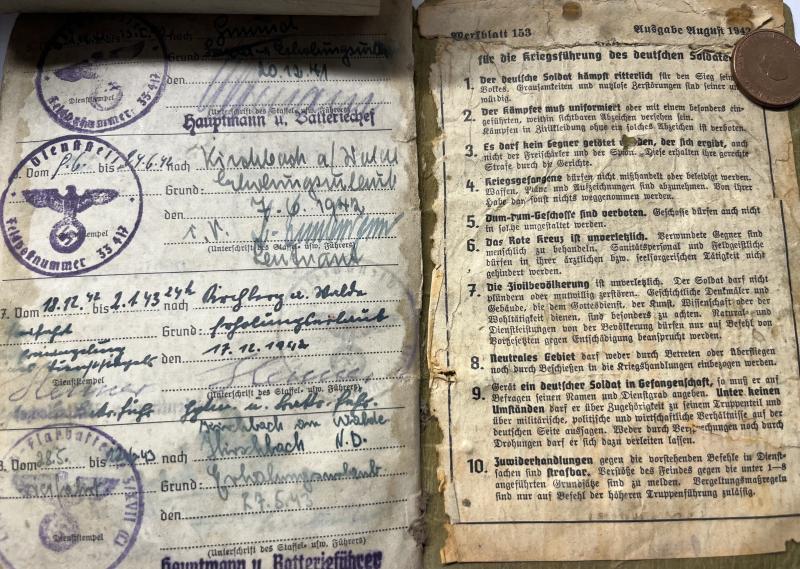 Gmünd
nach
Grund: Erholungsurl
Dienststempel
den 20.12.41
Feldpostnummer 33 417
(Unterschrift des Staffel- usw. Führers)
Hauptmann u. Batteriechef
Dienststelle
Feldpostnummer 33 417
Vom bis 24.6.42 nach Kirchbach a/Walde
Grund: Erholungsurlaub
den 7.6.1942
Dienststempel
(Unterschrift des Staffel- usw. Führers)
Leutnant
7. Vom 18.12.42 bis 2.1.43 24h nach Kirchberg a. Walde
Grund: Erholungsurlaub
den 17.12.1942
Dienststempel
(Unterschrift des Staffel- usw. Führers)
Kirchbach am Walde
8. Vom 28.5. bis nach Kirchbach N.D.
Grund: Erholungsurlaub
den 27.5.43
Dienststempel
(Unterschrift des Staffel- usw. Führers)
Hauptmann u. Batterieführer
Merkblatt 153 Ausgabe August 1942
für die Kriegsführung des deutschen Soldaten
1. Der deutsche Soldat kämpft ritterlich für den Sieg sein
Volkes. Grausamkeiten und nutzlose Zerstörungen sind seiner un
würdig.
2. Der Kämpfer muß uniformiert oder mit einem besonders ein-
geführten, weithin sichtbaren Abzeichen versehen sein.
Kämpfen in Zivilkleidung ohne ein solches Abzeichen ist verboten.
3. Es darf kein Gegner getötet werden, der sich ergibt, auch
nicht der Freischärler und der Spion. Diese erhalten ihre gerechte
Strafe durch die Gerichte.
4. Kriegsgefangene dürfen nicht mißhandelt oder beleidigt werden.
Waffen, Pläne und Aufzeichnungen sind abzunehmen. Von ihrer
Habe darf sonst nichts weggenommen werden.
5. Dum-Dum-Geschosse sind verboten. Geschosse dürfen auch nicht
in solche umgestaltet werden.
6. Das Rote Kreuz ist unverletzlich. Verwundete Gegner sind
menschlich zu behandeln. Sanitätspersonal und Feldgeistliche
dürfen in ihrer ärztlichen bzw. seelsorgerischen Tätigkeit nicht
gehindert werden.
7. Die Zivilbevölkerung ist unverletzlich. Der Soldat darf nicht
plündern oder mutwillig zerstören. Geschichtliche Denkmäler und
Gebäude, die dem Gottesdienst, der Kunst, Wissenschaft oder der
Wohltätigkeit dienen, sind besonders zu achten. Natural- und
Dienstleistungen von der Bevölkerung dürfen nur auf Befehl von
Vorgesetzten gegen Entschädigung beansprucht werden.
8. Neutrales Gebiet darf weder durch Betreten oder Überfliegen
noch durch Beschießen in die Kriegshandlungen einbezogen werden.
9. Gerät ein deutscher Soldat in Gefangenschaft, so muß er auf
Befragen seinen Namen und Dienstgrad angeben. Unter keinen
Umständen darf er über Zugehörigkeit zu seinem Truppenteil und
über militärische, politische und wirtschaftliche Verhältnisse auf der
deutschen Seite aussagen. Weder durch Versprechungen noch durch
Drohungen darf er sich dazu verleiten lassen.
10. Zuwiderhandlungen gegen die vorstehenden Befehle in Dienst-
sachen sind strafbar. Verstöße des Feindes gegen die unter 1—8
angeführten Grundsätze sind zu melden. Vergeltungsmaßregeln
sind nur auf Befehl der höheren Truppenführung zulässig.